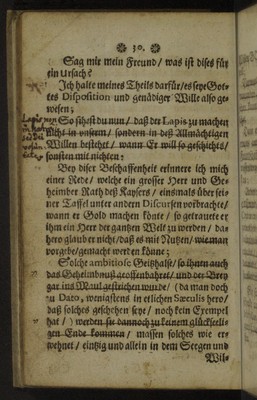 30.
Sag mir mein Freund / was ist dises für
ein Ursach?
Ich halte meines Theils darfür / es seye Got-
tes Disposition und genädiger Wille also ge-
wesen;
So sihest du nun / daß der Lapis zu machen
nicht in unserm / sondern in deß Allmächtigen
Willen bestehet / wann Er will so geschichts /
sonsten mit nichten:
Bey diser Beschaffenheit erinnere ich mich
einer Rede / welche ein grosser Herr und Ge-
heimber Rath deß Kaysers / einsmals über sei-
ner Taffel unter andern Discursen vorbrachte /
wann er Gold machen könte / so getrauete er
ihm ein Herr der gantzen Welt zu werden / da-
hero glaub er nicht / daß es mit Nutzen / wie man
vorgibe / gemacht werden könne;
Solche ambitiose Geitzhälse / so ihnen auch
das Geheimbnuß geoffenbahret / und der Brey
gar ins Maul gestrichen wurde / (da man doch
zu Dato, wenigstens in etlichen Sæculis hero /
daß solches geschehen seye / noch kein Exempel
hat /) werden sie dannoch zu keinem glückseeli-
gen Ende kommen / massen solches wie er-
wehnet / eintzig und allein in dem Seegen und
Wil-
Lapis